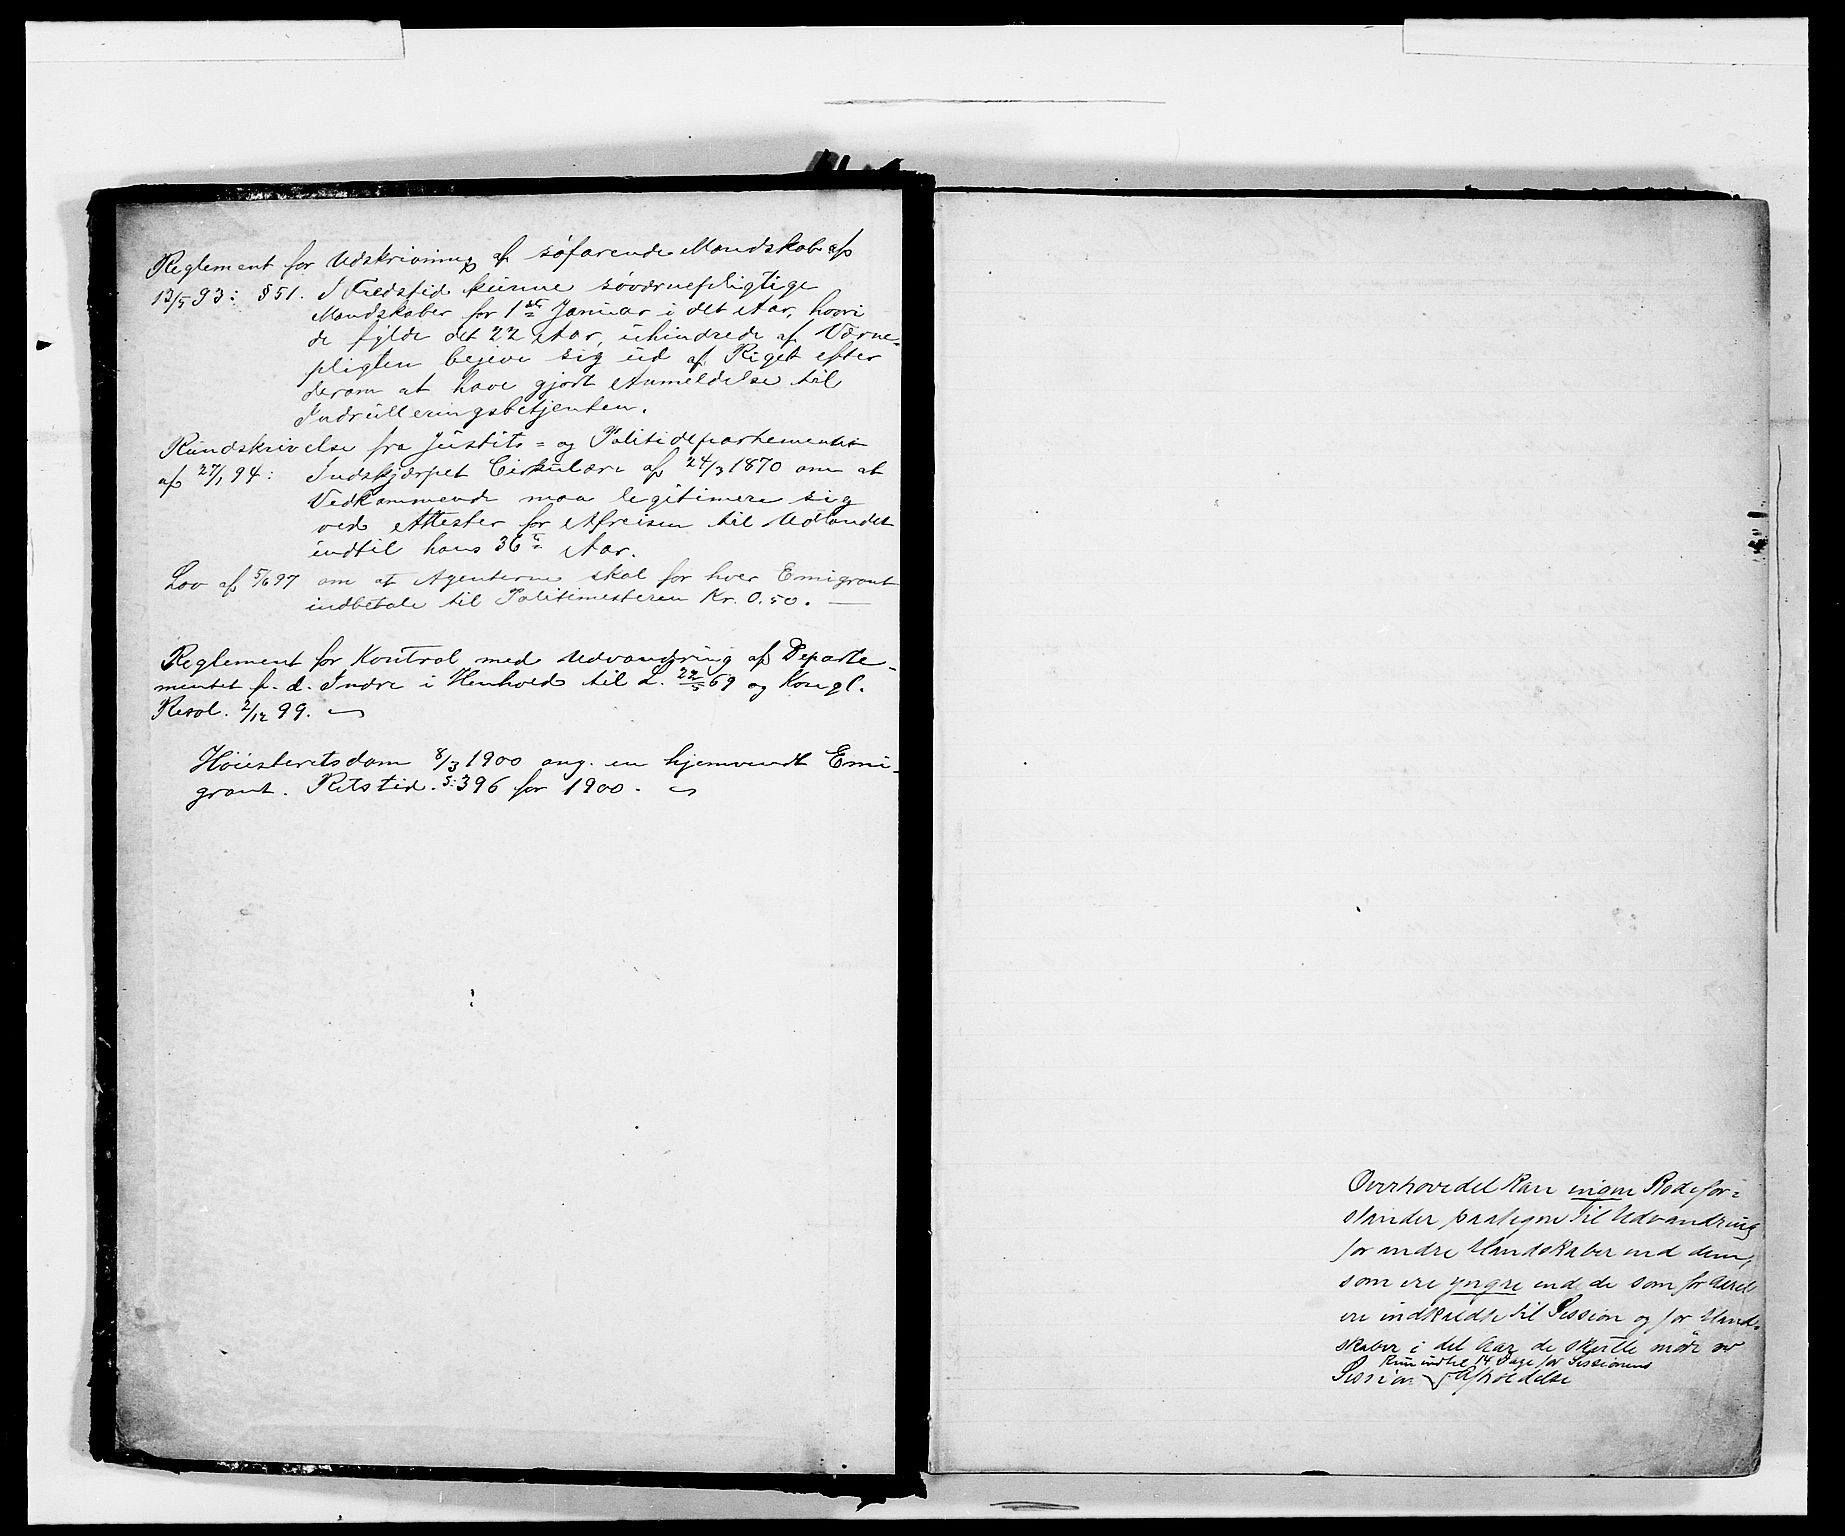 Reglement for Udskrivning af søfarende Mandskab af
13/5 93: §51. I Fredstid kunne søværnepligtige
Mandskaber før 1ste Januar i det Aar, hvori
de fylde det 22 Aar, uhindrede af Værne-
pligten begive sig ud af Riget efter
derom at have gjort Anmeldelse til
Indrulleringsbetjenten.
Rundskrivelse fra Justits- og Politidepartementet
af 27/1 94: Indskjærpet Cirkulære af 24/3 1870 om at
Vedkommende maa legitimere sig
ved Attester før Afreisen til Udlandet
indtil hans 36te Aar.
Lov af 5/6 97 om at Agenterne skal for hver Emigrant
indbetale til Politimesteren Kr. 0.50. —
Reglement for Kontrol med Udvandring af Departe-
mentet f. d. Indre i Henhold til L. 22/5 69 og Kongl.
Resol. 2/12 99.
Høiesteretsdom 8/3 1900 ang. en hjemvendt Emi-
grant. Retstid. S: 396 for 1900.
Overhovedet kan ingen Rodefor-
stander paategne til Udvandring
for andre Mandskaber end dem,
som ere yngre end de som for Aaret
ere indkaldte til Session og for Mand-
skaber i det Aar de skulle møde ved
Kun indtil 14 Dage før Sessionens
Session Afholdelse